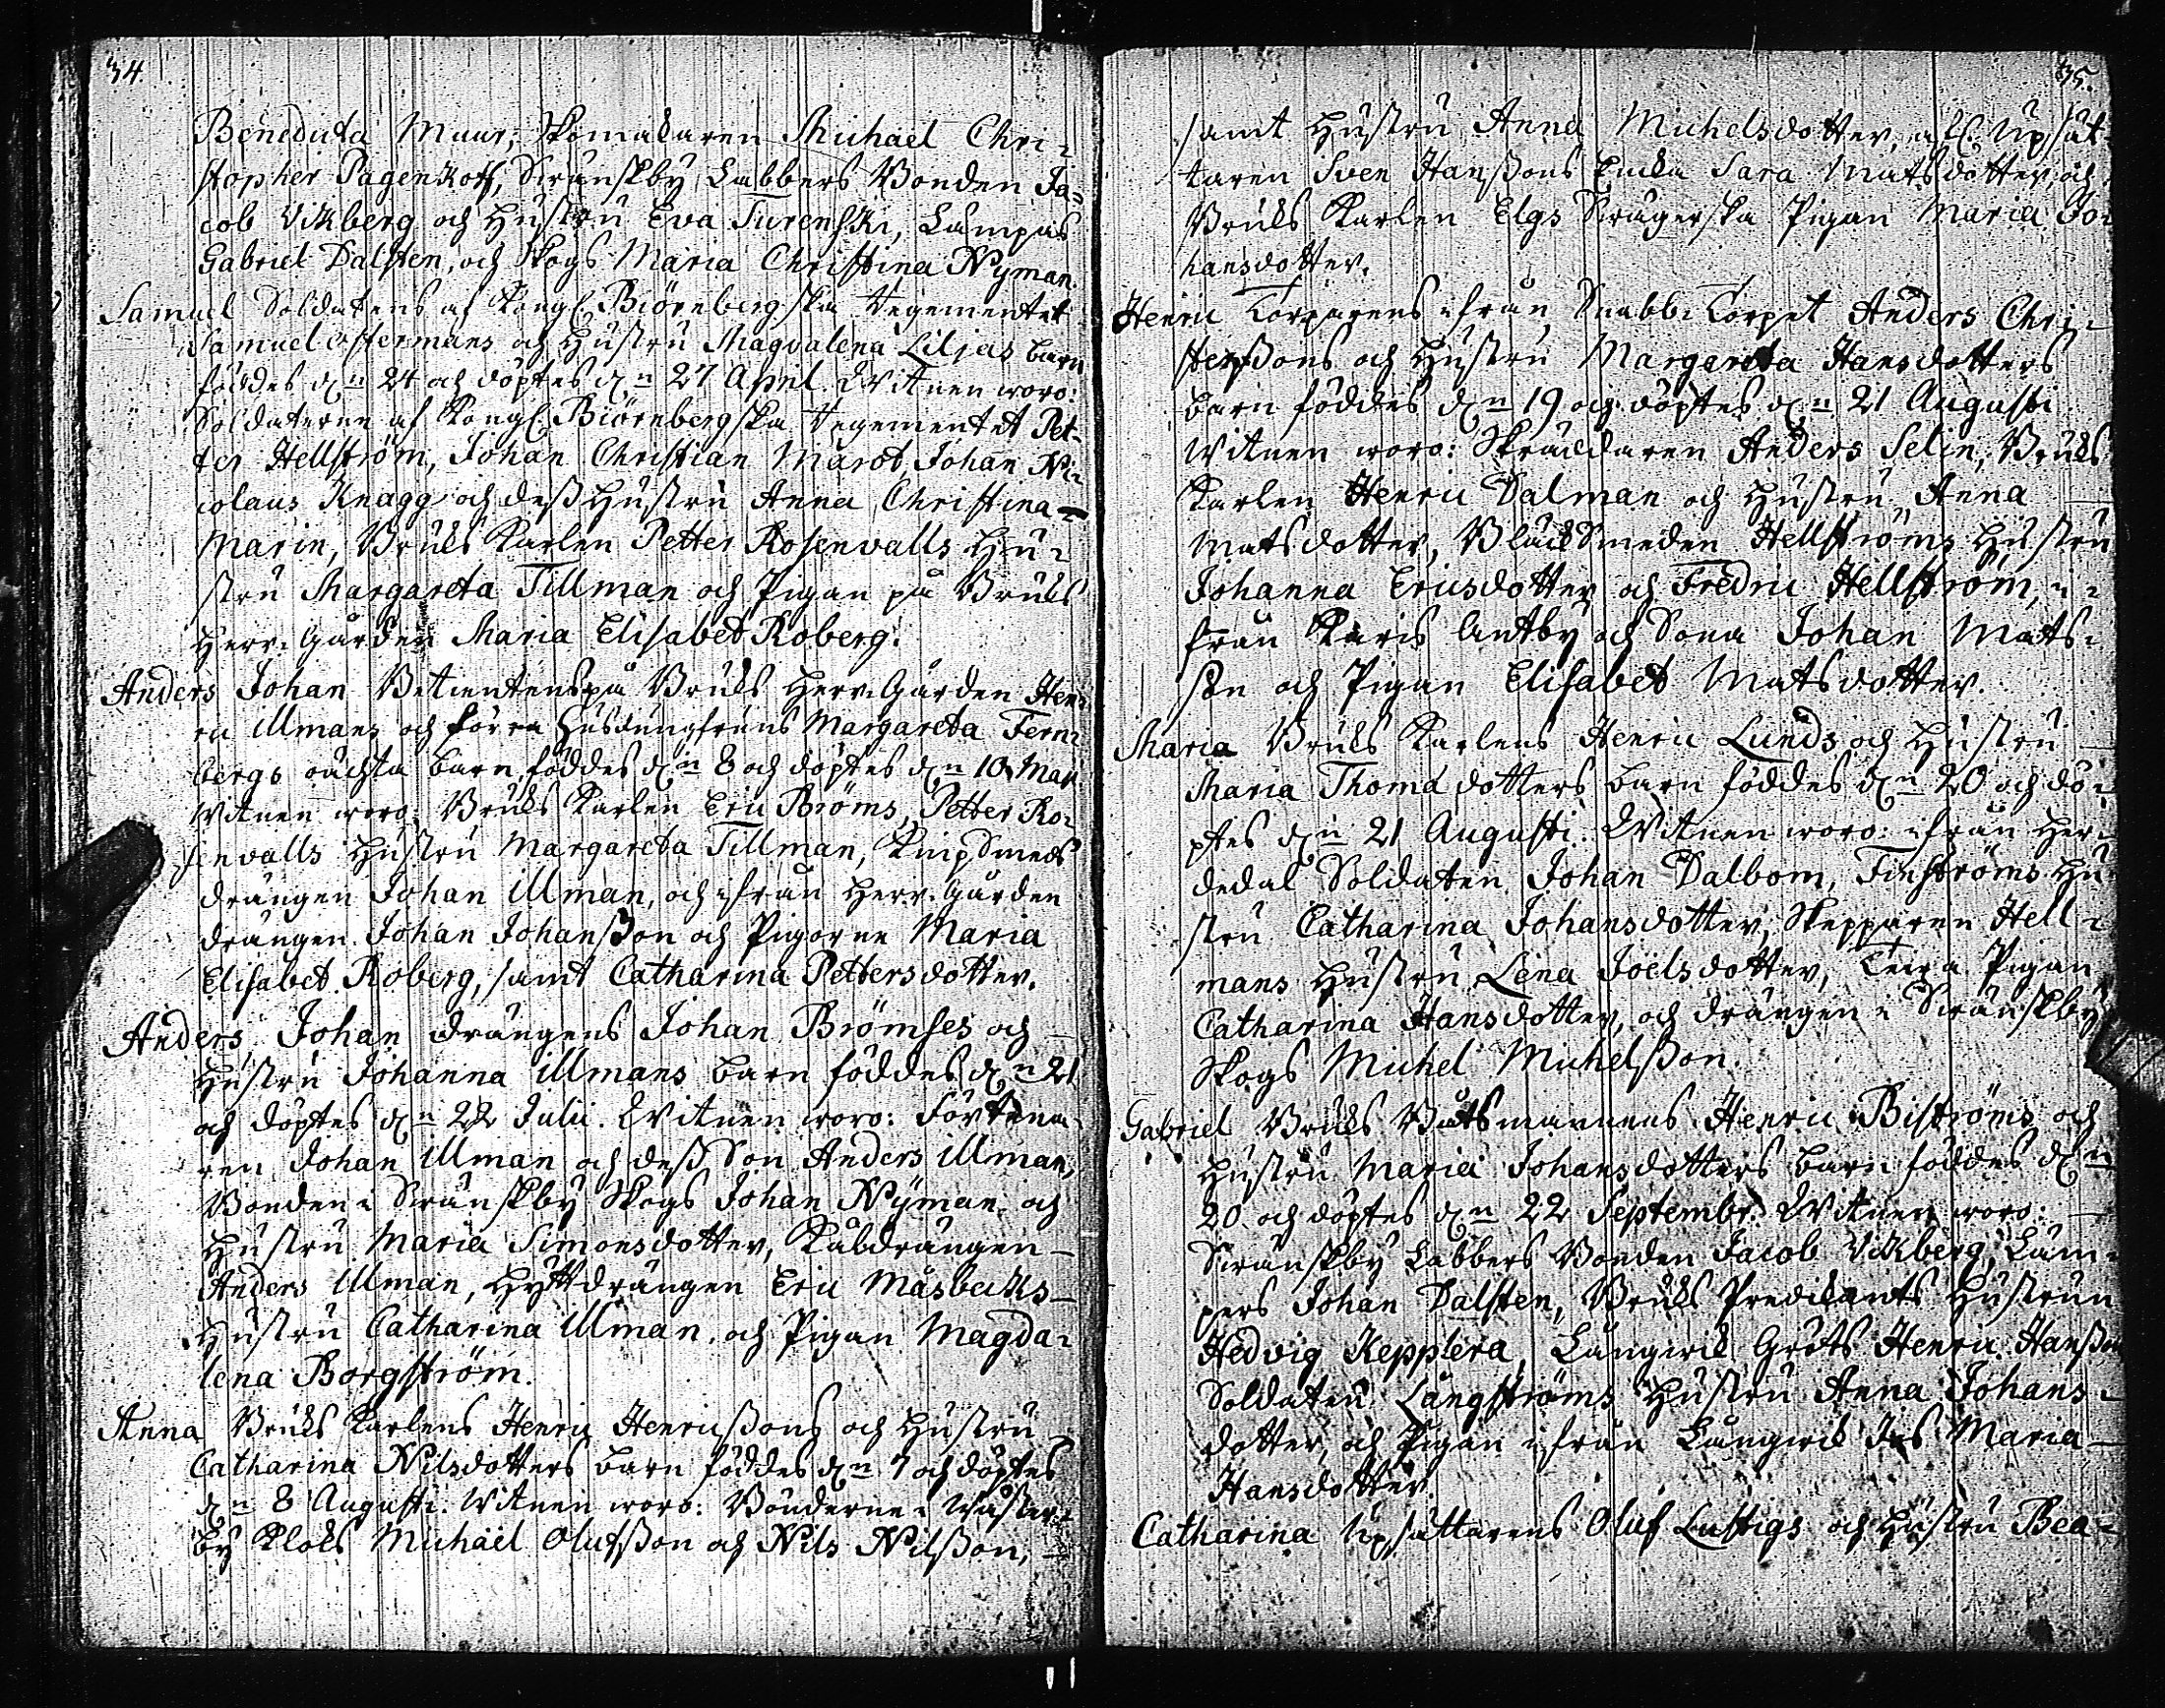 34.
Benedicta Muur, Skomakaren Michaël Chri-
stopher Pagenkoff, Swänskby Labbers Bonden Ja-
cob Vikberg och Hustru Eva Turenski, Lampas
Gabriel Dalsten, och Skogs Maria Christina Nyman.
Samuel Soldatens af Kongl. Biörnebergska Regementet
Samuel Östermans och Hustru Magdalena Liljas barn
föddes d:n 24 och döptes d:n 27 April. Witnen woro:
Soldaterne af Kongl. Biörnebergska Regementet Pet-
ter Hellström, Johan Christian Marot, Johan Ni-
colaus Knagg och dess Hustru Anna Christina
Marin, Bruks Karlen Petter Rosenvalls Hu-
stru Margareta Tillman och Pigan på Bruks
Herr-Gården Maria Elisabet Roberg.
Anders Johan Betientens på Bruks Herr-Gården Hen-
ric Illmans och förra Husjungfruns Margareta Fern-
bergs oächta barn föddes d:n 8 och döptes d:n 10 Maji
Witnen woro: Bruks Karlen Eric Bröms, Petter Ro-
senvalls Hustru Margareta Tillman, Knipsmeds
drängen Johan Illman, och ifrån Herr-Gården
drängen Johan Johansson och Pigorne Maria
Elisabet Roberg, samt Catharina Pettersdotter.
Anders Johan drängens Johan Brömses och
Hustru Johanna Illmans barn föddes d:n 21
och döptes d:n 22 Julii. Witnen woro:
ren Johan Illman och dess Son Anders Illman,
Bonden i Swänskby Skogs Johan Nyman och
Hustru Maria Simonsdotter, Kåldrängen
Anders Illman, Hyttdrängen Eric Måsbecks
Hustru Catharina Illman, och Pigan Magda-
lena Borgström.
Anna Bruks Karlens Henric Henricssons och Hustru
Catharina Nilsdotters barn föddes d:n 7 och döptes
d:n 8 Augusti. Witnen woro: Bönderne i Wäster-
by Kloks Michaël Olufsson och Nils Nilsson,
35.
samt Hustru Anna Michelsdotter, afl. Upsät-
taren Sven Hanssons Encka Sara Matsdotter, och
Bruks Karlen Elgs Swägerska Pigan Maria Jo-
hansdotter.
Henric Torparens ifrån Snabb-Torpet Anders Chri-
stenssons och Hustru Margareta Hansdotters
barn föddes d:n 19 och döptes d:n 21 Augusti
Witnen woro: Skräddaren Anders Selin, Bruks
Karlen Henric Dalman och Hustru Anna
Matsdotter, Blacksmeden Hellströms Hustru
Johanna Ericsdotter och Fredric Hellström, i-
från Karis Antby och Sona Johan Mats-
son och Pigan Elisabet Matsdotter.
Maria Bruks Karlens Henric Lunds och Hustru
Maria Thomædotters barn föddes d:n 20 och dö-
ptes d:n 21 Augusti. Witnen woro: ifrån Her-
dedal Soldaten Johan Dalbom, Finströms Hu-
stru Catharina Johansdotter, Skepparen Hell-
mans Hustru Lena Joelsdotter, Pigan
Catharina Hansdotter, och drängen i Swänskby
Skogs Michel Michelsson.
Gabriel Bruks Båtsmannens Henric Biströms och
Hustru Maria Johansdotters barn föddes d:n
20 och döptes d:n 22 Septembr. Witnen woro:
Swänskby Labbers Bonden Jacob Vikberg, Lam-
pers Johan Dalsten, Bruks Predikants Hustrun
Hedvig Kepplera, Långwik Gröts Henric Hansson
Soldaten Långströms Hustru Anna Johans-
dotter, och Pigan ifrån Långwik Jös Maria
Hansdotter.
Catharina Upsättarens Oluf Lustigs och Hustru Bea-